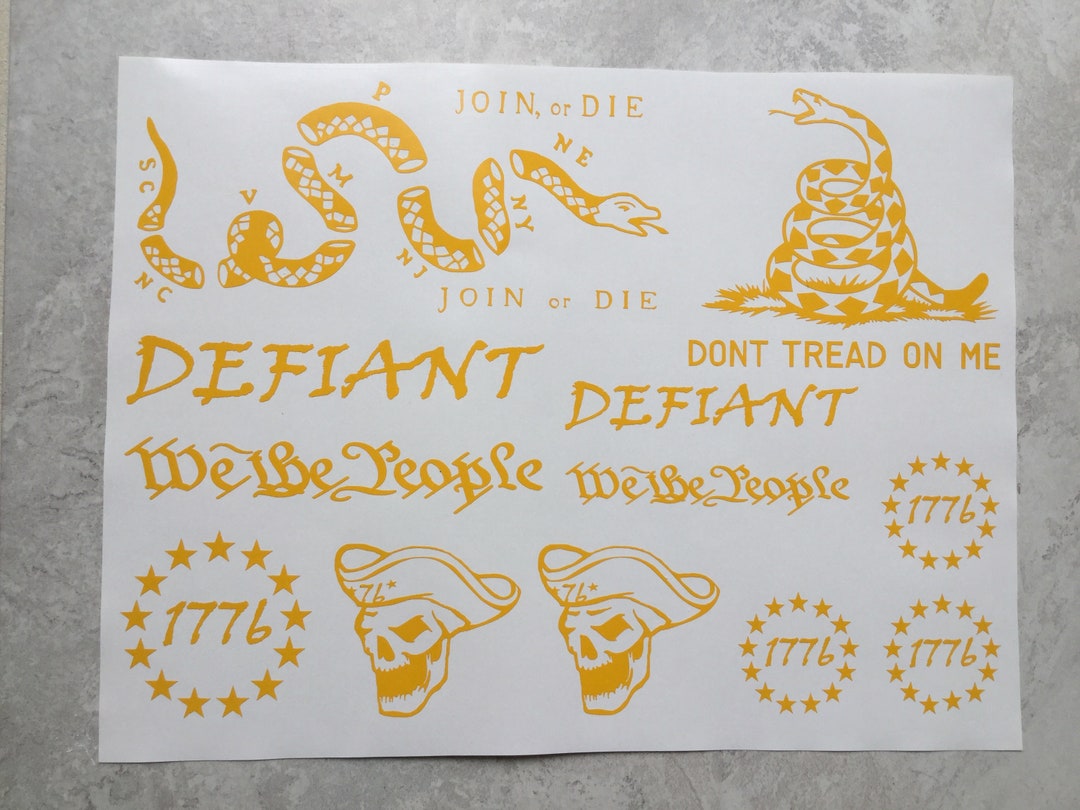 JOIN, or DIE
SC
NC
V
M
P
NJ
NY
NE
JOIN or DIE
DONT TREAD ON ME
DEFIANT
DEFIANT
We the People
We the People
1776
1776
76
76
1776
1776